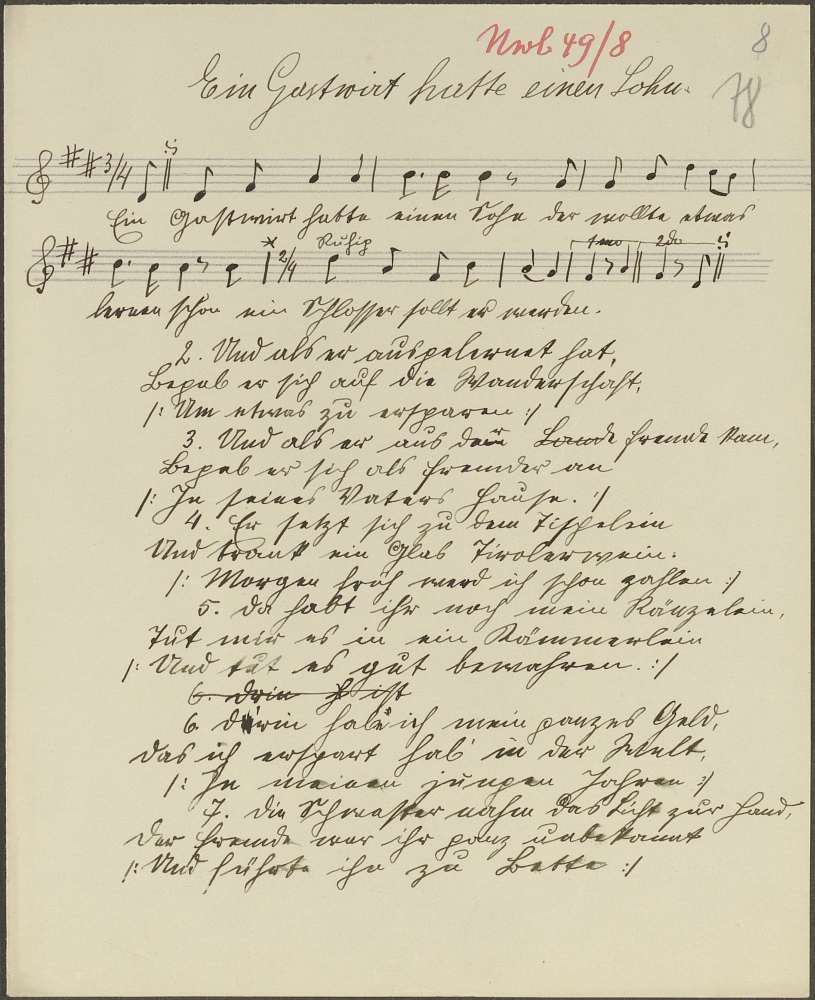 Nwb 49/8
8
78
Ein Gastwirt hatte einen Sohn.
3/4
Ein Gastwirt hatte einen Sohn der wollte etwas
Ruhig 1mo 2do
2/4
lernen schon ein Schlosser sollt er werden.
2. Und als er ausgelernet hat,
Begab er sich auf die Wanderschaft,
/: Um etwas zu ersparen :/
3. Und als er aus der Lande Fremde kam,
Begab er sich als Fremder an
/: In seines Vaters Hause. :/
4. Er setzt sich zu dem Tischelein
Und trank ein Glas Tirolerwein.
/: Morgen früh werd ich schon zahlen :/
5. Da habt ihr noch mein Ränzelein,
Tut mir es in ein Kämmerlein
/: Und tut es gut bewahren. :/
6. Drin ist
6. Darin habe ich mein ganzes Geld,
Das ich erspart hab' in der Welt,
/: In meinen jungen Jahren :/
7. Die Schwester nahm das Licht zur Hand,
Der Fremde war ihr ganz unbekannt
/: Und führte ihn zu Bette :/